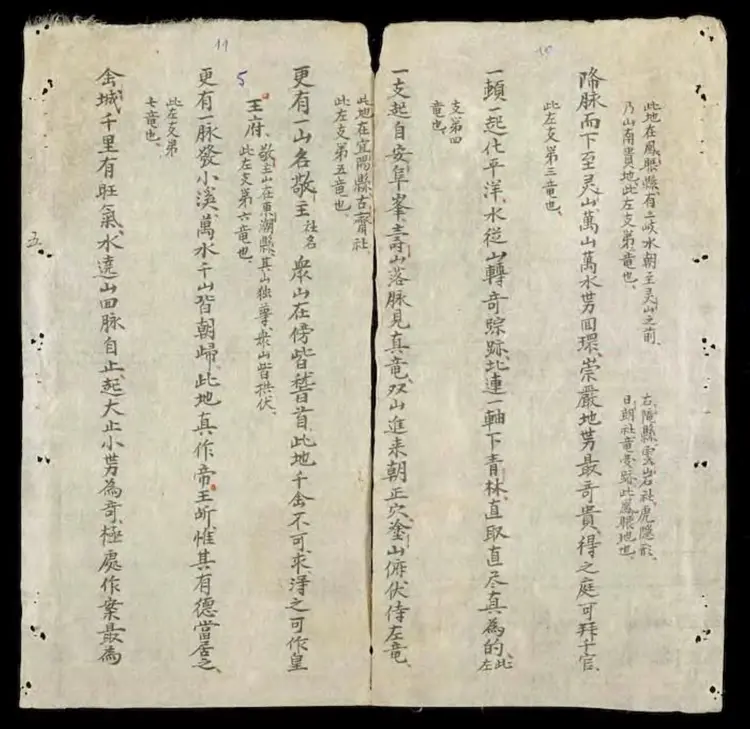 10
此地在鳳眼縣有二岐水朝至灵山之前
乃山南貴地此左支第二竜也
右隴縣雲岩社虎隐形
日朗社竜跡此鳳眼地也
降脉而下至灵山萬山萬水势囬環崇嚴地势最奇貴得之庭可拜千官
此左支第三竜也
一頓一起化平洋水從山轉奇踪跡北連一軸下青林直取直尽真為的此左
支第四
竜也
一支起自安阜峯壽山落脉見真竜双山進来朝正穴釜山俯伏侍左竜
11
此地在宜陽縣古齋社
此左支第五竜也
更有一山名敬主姓名衆山在傍皆稽首此地千金不可求浔之可作皇
5
王府敬主山在東潮縣其山独尊衆山皆拱伏
此左支第六竜也
更有一脉發小溪萬水千山皆朝歸此地真作帝王所惟其有德當居之
此左支第
七竜也
金城千里有旺氣水遶山囬脉自止起大止小势為奇極處作案最為
五